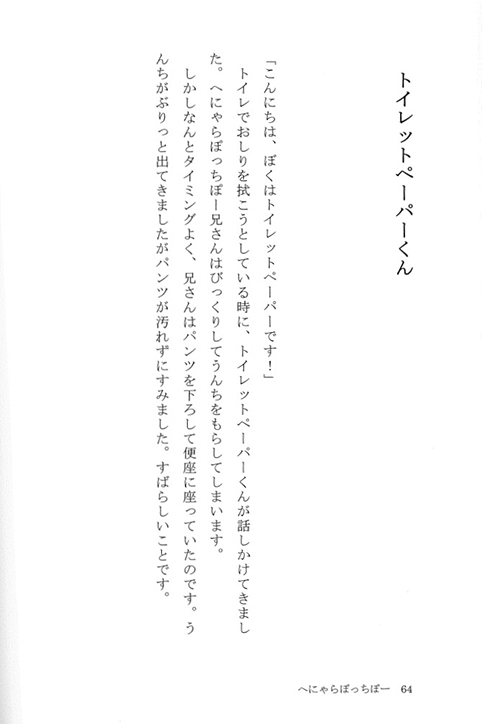 トイレットペーパーくん
「こんにちは、ぼくはトイレットペーパーです！」
　トイレでおしりを拭こうとしている時に、トイレットペーパーくんが話しかけてきまし
た。へにゃらぽっちぽー兄さんはびっくりしてうんちをもらしてしまいます。
　しかしなんとタイミングよく、兄さんはパンツを下ろして便座に座っていたのです。う
んちがぶりっと出てきましたがパンツが汚れずにすみました。すばらしいことです。
へにゃらぽっちぽー　64